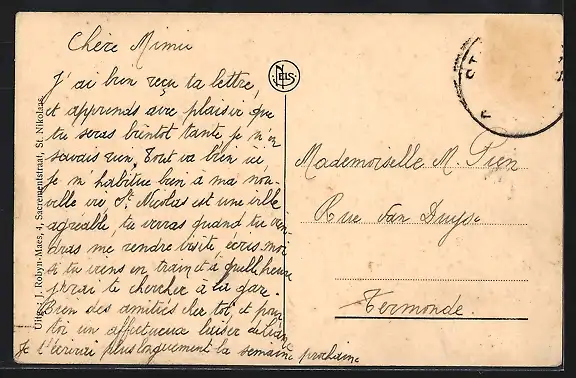 Chère Mimie
J'ai bien reçu ta lettre,
et apprends avec plaisir que
tu seras bientot tante je n'en
savais rien. Tout va bien ici,
je m'habitue bien à ma nou-
velle vie, St Nicolas est une ville
agréable tu verras quand tu vien-
dras me rendre visite écris moi
si tu viens en train et à quelle heure
j'irai te chercher à la gar.
Bien des amitiés chez toi, et pour
toi un affectueux baiser de
Je t'écrirai plus longuement la semaine prochaine
Uitg. J. Robyn-Maes, 4, Sacramentstraat, St. Nikolaas
NELS
ST
Mademoiselle M. Pien
Rue Van Duyse
Termonde.